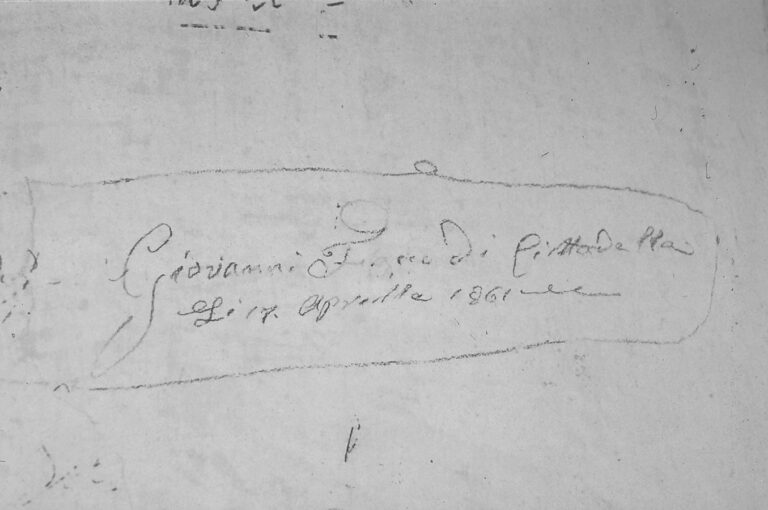 Giovanni di Cittadella
Li 17. Aprilla 1861